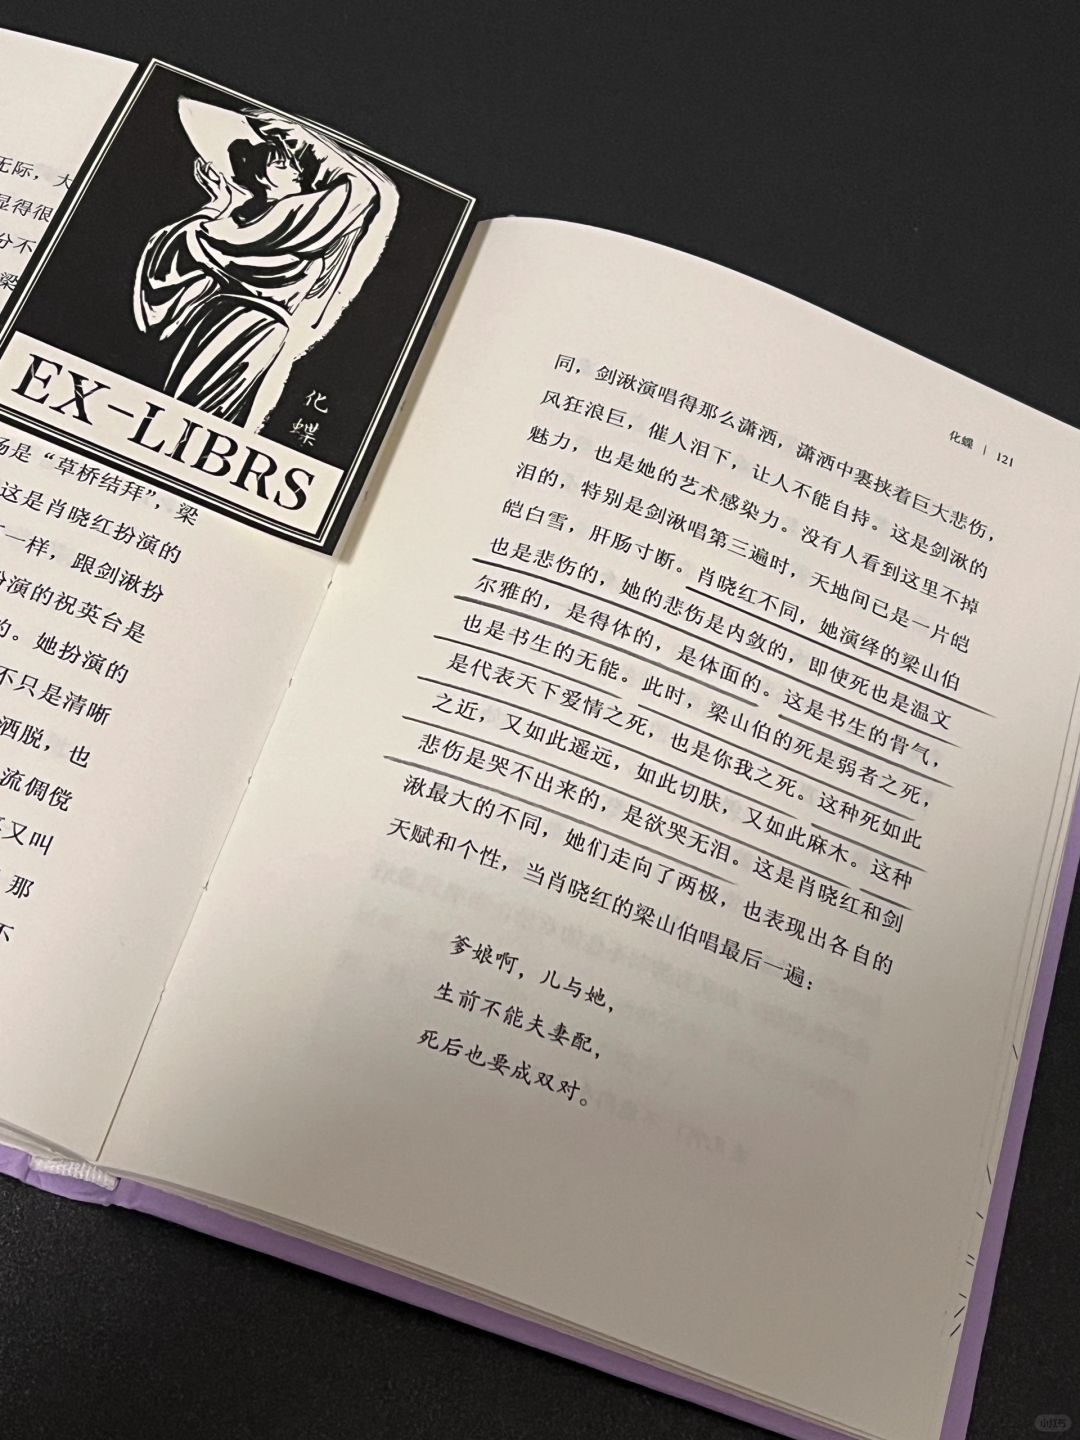 无际，大
显得很
分不
梁
EX-LIBRS
化
蝶
场是“草桥结拜”，梁
这是肖晓红扮演的
一样，跟剑湫扮
扮演的祝英台是
的。她扮演的
不只是清晰
洒脱，也
流倜傥
又叫
那
不
化蝶 | 121
同，剑湫演唱得那么潇洒，潇洒中裹挟着巨大悲伤，
风狂浪巨，催人泪下，让人不能自持。这是剑湫的
魅力，也是她的艺术感染力。没有人看到这里不掉
泪的，特别是剑湫唱第三遍时，天地间已是一片皑
皑白雪，肝肠寸断。肖晓红不同，她演绎的梁山伯
也是悲伤的，她的悲伤是内敛的，即使死也是温文
尔雅的，是得体的，是体面的。这是书生的骨气，
也是书生的无能。此时，梁山伯的死是弱者之死，
是代表天下爱情之死，也是你我之死。这种死如此
之近，又如此遥远，如此切肤，又如此麻木。这种
悲伤是哭不出来的，是欲哭无泪。这是肖晓红和剑
湫最大的不同，她们走向了两极，也表现出各自的
天赋和个性，当肖晓红的梁山伯唱最后一遍：
爹娘啊，儿与她，
生前不能夫妻配，
死后也要成双对。
小红书